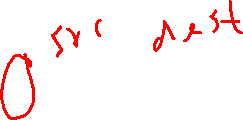 src dest